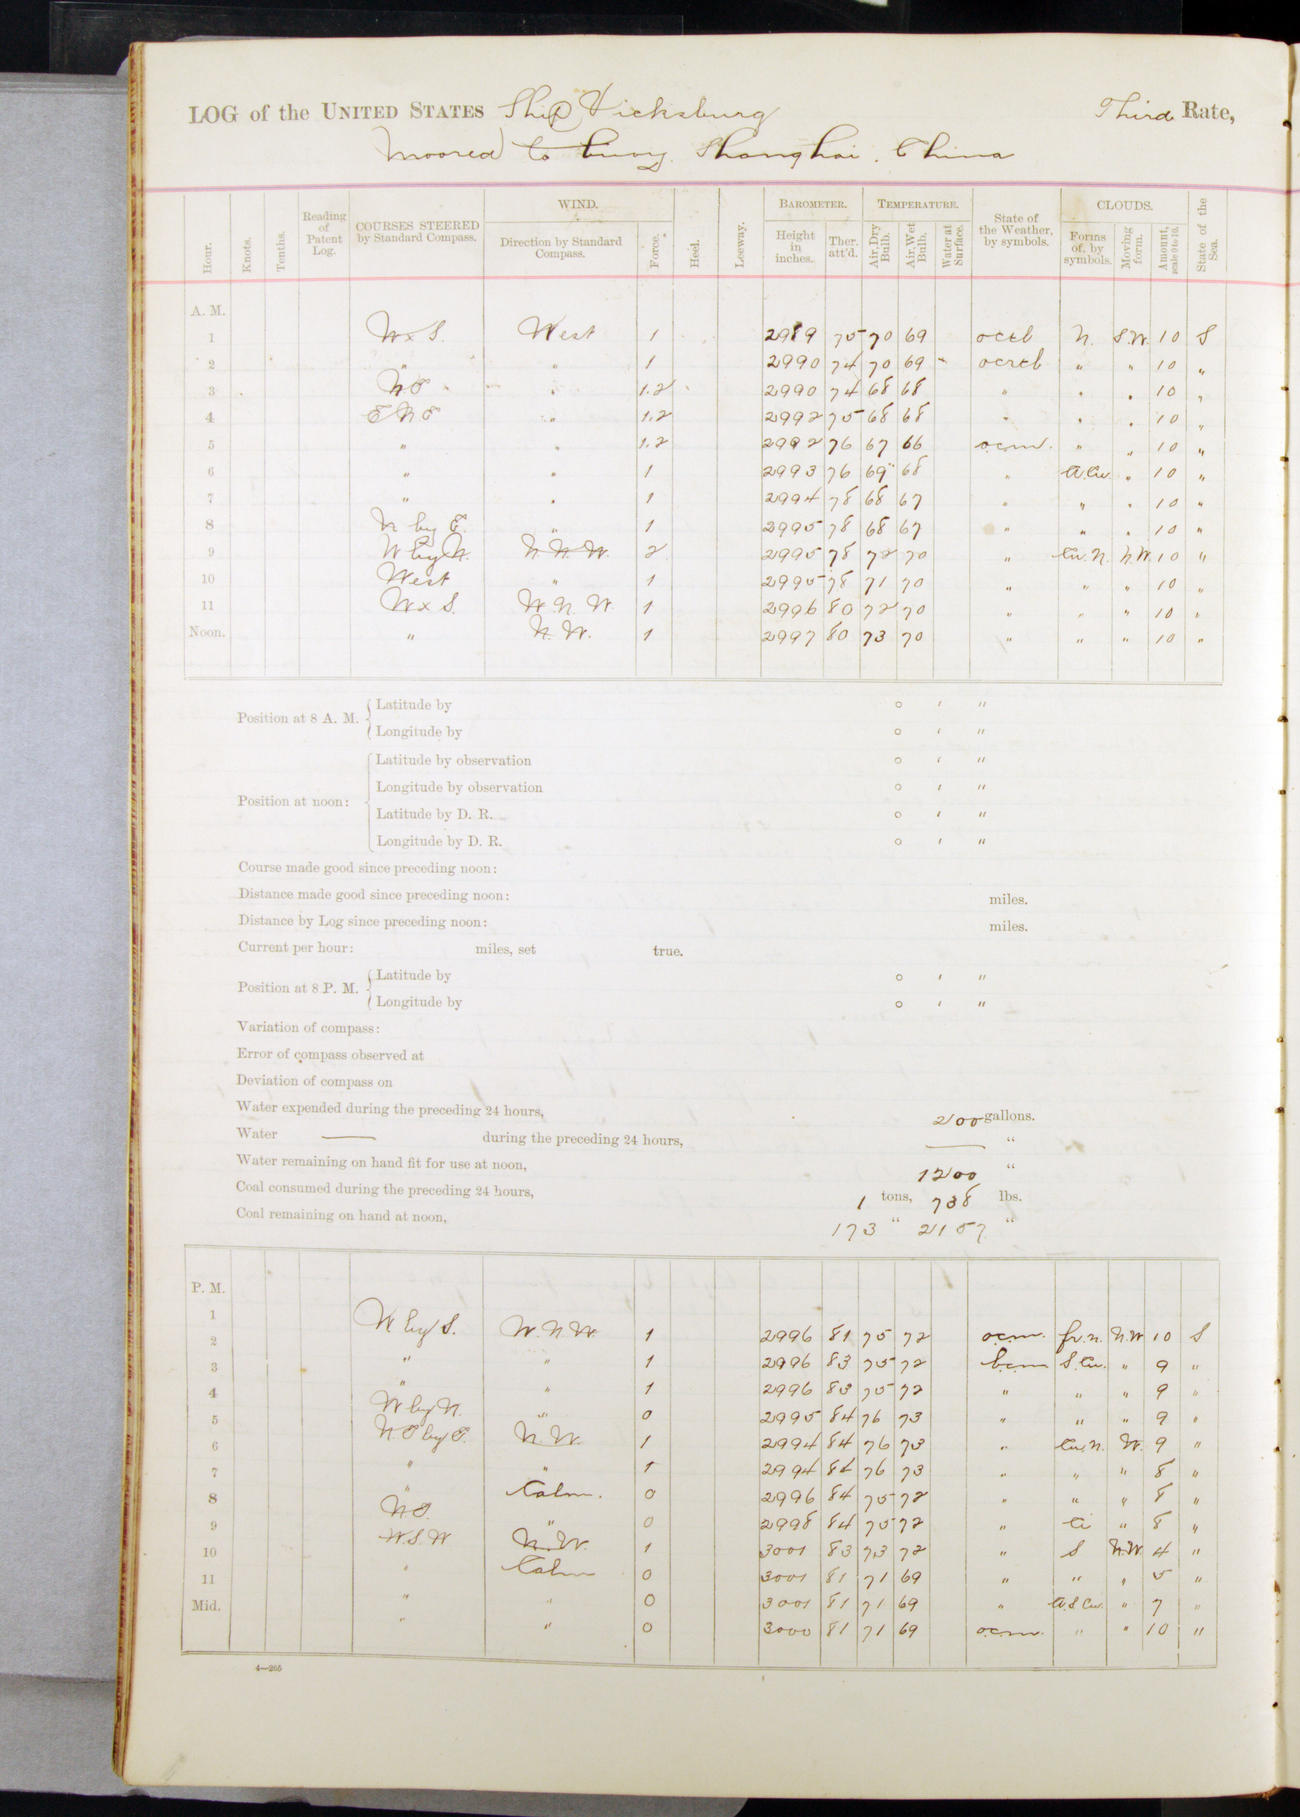 LOG of the UNITED STATES Ship Vicksburg Third Rate,
Moored to buoy. Shanghai. China
Hour. Knots. Tenths. Reading of Patent Log. COURSES STEERED by Standard Compass. WIND. Direction by Standard Compass. Force. Heel. Leeway. BAROMETER. Height in inches. Ther. att'd. TEMPERATURE. Air, Dry Bulb. Air, Wet Bulb. Water at Surface. State of the Weather, by symbols. CLOUDS. Forms of, by symbols. Moving form. Amount, scale 0 to 10. State of the Sea.
A. M.
1 W x S. West 1 2989 75 70 69 octb N. S.W. 10 S
2 " " 1 2990 74 70 69 " ocrtb " " 10 "
3 NE " 1.2 2990 74 68 68 " " " 10 "
4 ENE " 1.2 2992 75 68 68 " " " 10 "
5 " " 1.2 2992 76 67 66 ocm. " " 10 "
6 " " 1 2993 76 69 68 " A.Cu. " 10 "
7 " " 1 2994 78 68 67 " " " 10 "
8 N by E. " 1 2995 78 68 67 " " " 10 "
9 W by N. N.N.W. 2 2995 78 72 70 " Cu.N. N.W. 10 "
10 West " 1 2995 78 71 70 " " " 10 "
11 W x S. W.N.W. 1 2996 80 72 70 " " " 10 "
Noon. " N.W. 1 2997 80 73 70 " " " 10 "
Position at 8 A. M. Latitude by ° ' "
Longitude by ° ' "
Position at noon: Latitude by observation ° ' "
Longitude by observation ° ' "
Latitude by D. R. ° ' "
Longitude by D. R. ° ' "
Course made good since preceding noon:
Distance made good since preceding noon: miles.
Distance by Log since preceding noon: miles.
Current per hour: miles, set true.
Position at 8 P. M. Latitude by ° ' "
Longitude by ° ' "
Variation of compass:
Error of compass observed at
Deviation of compass on
Water expended during the preceding 24 hours, 200 gallons.
Water — during the preceding 24 hours, — "
Water remaining on hand fit for use at noon, 1200 "
Coal consumed during the preceding 24 hours, 1 tons, 738 lbs.
Coal remaining on hand at noon, 173 " 2157 "
P. M.
1 W by S. W.N.W. 1 2996 81 75 72 ocm. fr.n. N.W 10 S
2 " " 1 2996 83 75 72 bcm S.Cu. " 9 "
3 " " 1 2996 83 75 72 " " " 9 "
4 W by N. " 0 2995 84 76 73 " " " 9 "
5 NE by E. N.W. 1 2994 84 76 73 " Cu.N. W. 9 "
6 " " 1 2994 84 76 73 " " " 8 "
7 " Calm. 0 2996 84 75 72 " " " 8 "
8 NE. " 0 2998 84 75 72 " Ci " 8 "
9 W.S.W N.W. 1 3001 83 73 72 " S N.W. 4 "
10 " Calm 0 3001 81 71 69 " " " 5 "
11 " " 0 3001 81 71 69 " A.S.Cu. " 7 "
Mid. " " 0 3000 81 71 69 ocm. " " 10 "
4—265